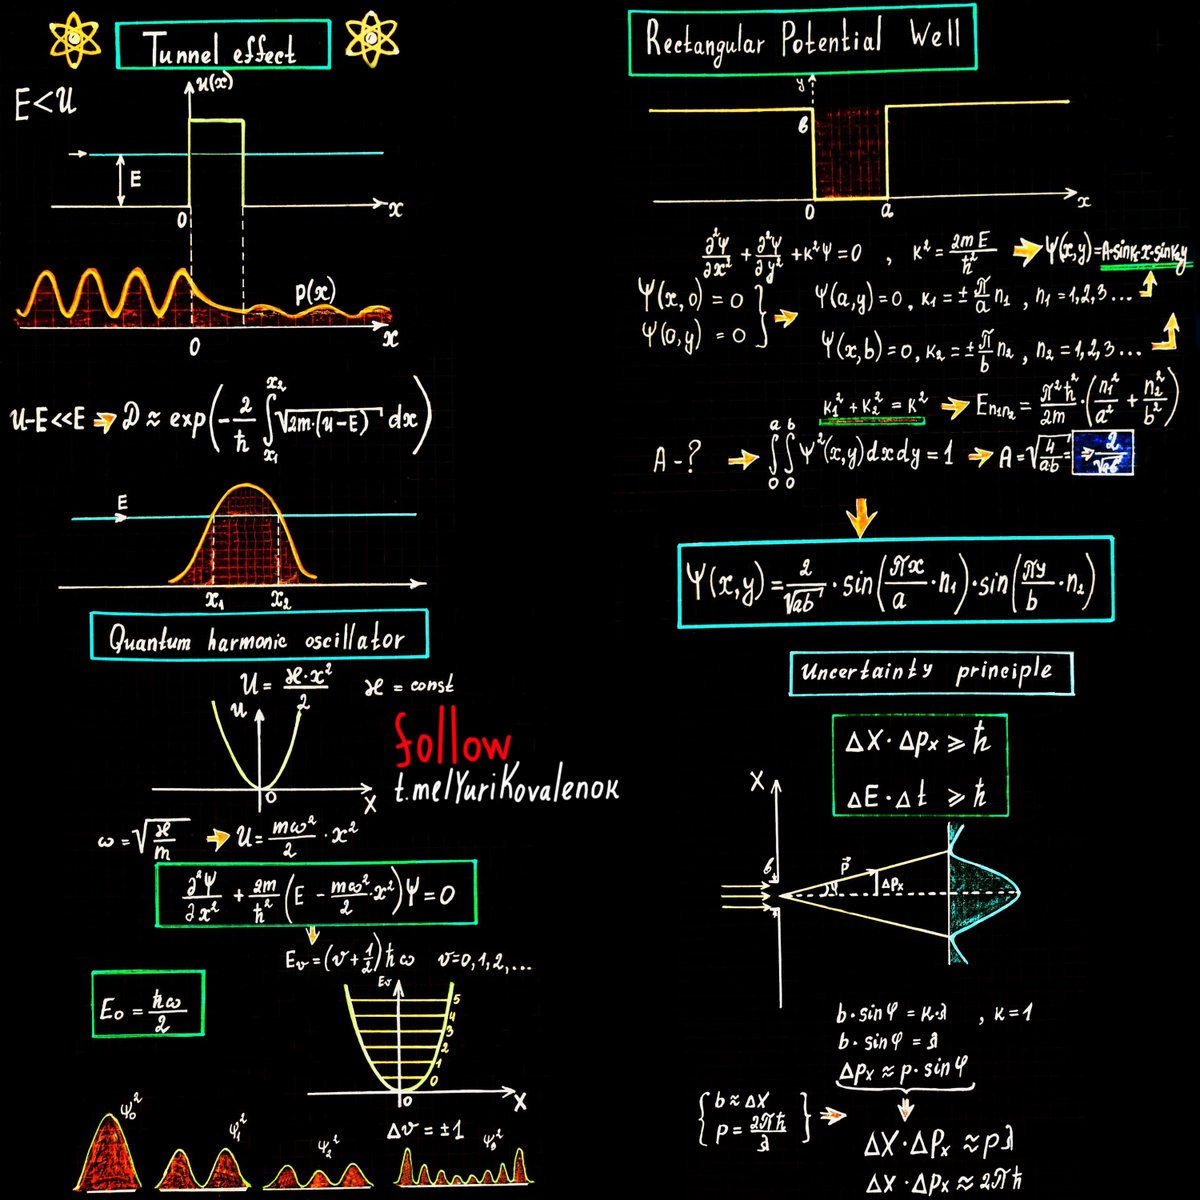 Tunnel effect
E<U
U(x)
E
0
x
p(x)
0
x
U-E<<E ⇒ D ≈ exp(-2/ħ ∫x₁x₂ √2m·(U-E) dx)
E
x₁ x₂
Quantum harmonic oscillator
U = ϰ·x²/2 ϰ = const
U
0
X
follow
t.me/YuriKovalenok
ω = √ϰ/m ⇒ U = mω²/2 · x²
∂²Ψ/∂x² + 2m/ħ² (E - mω²/2 · x²)Ψ = 0
Eᵥ = (v + 1/2) ħω v = 0, 1, 2, ...
E₀ = ħω/2
Eᵥ
5
4
3
2
1
0
0
X
Δv = ±1
Ψ₀²
Ψ₁²
Ψ₂²
Rectangular Potential Well
y
в
0
a
x
∂²Ψ/∂x² + ∂²Ψ/∂y² + κ²Ψ = 0 , κ² = 2mE/ħ² ⇒ Ψ(x,y) = A·sinκ₁x·sinκ₂y
Ψ(x,0) = 0
Ψ(0,y) = 0
Ψ(a,y) = 0, κ₁ = ± π/a n₁ , n₁ = 1,2,3...
Ψ(x,b) = 0, κ₂ = ± π/b n₂ , n₂ = 1,2,3...
κ₁² + κ₂² = κ² ⇒ En₁n₂ = π²ħ²/2m · (n₁²/a² + n₂²/b²)
A - ? ⇒ ∫0a ∫0b Ψ²(x,y) dx dy = 1 ⇒ A = √4/ab = ⇒ 2/√ab
Ψ(x,y) = 2/√ab · sin(πx/a · n₁) · sin(πy/b · n₂)
Uncertainty principle
ΔX · Δpx ⩾ ħ
ΔE · Δt ⩾ ħ
X
в
p⃗
φ
Δpx
b · sinφ = κ·λ , κ = 1
b · sinφ = λ
Δpx ≈ p · sinφ
b ≈ ΔX
p = 2πħ/λ
ΔX · Δpx ≈ pλ
ΔX · Δpx ≈ 2πħ